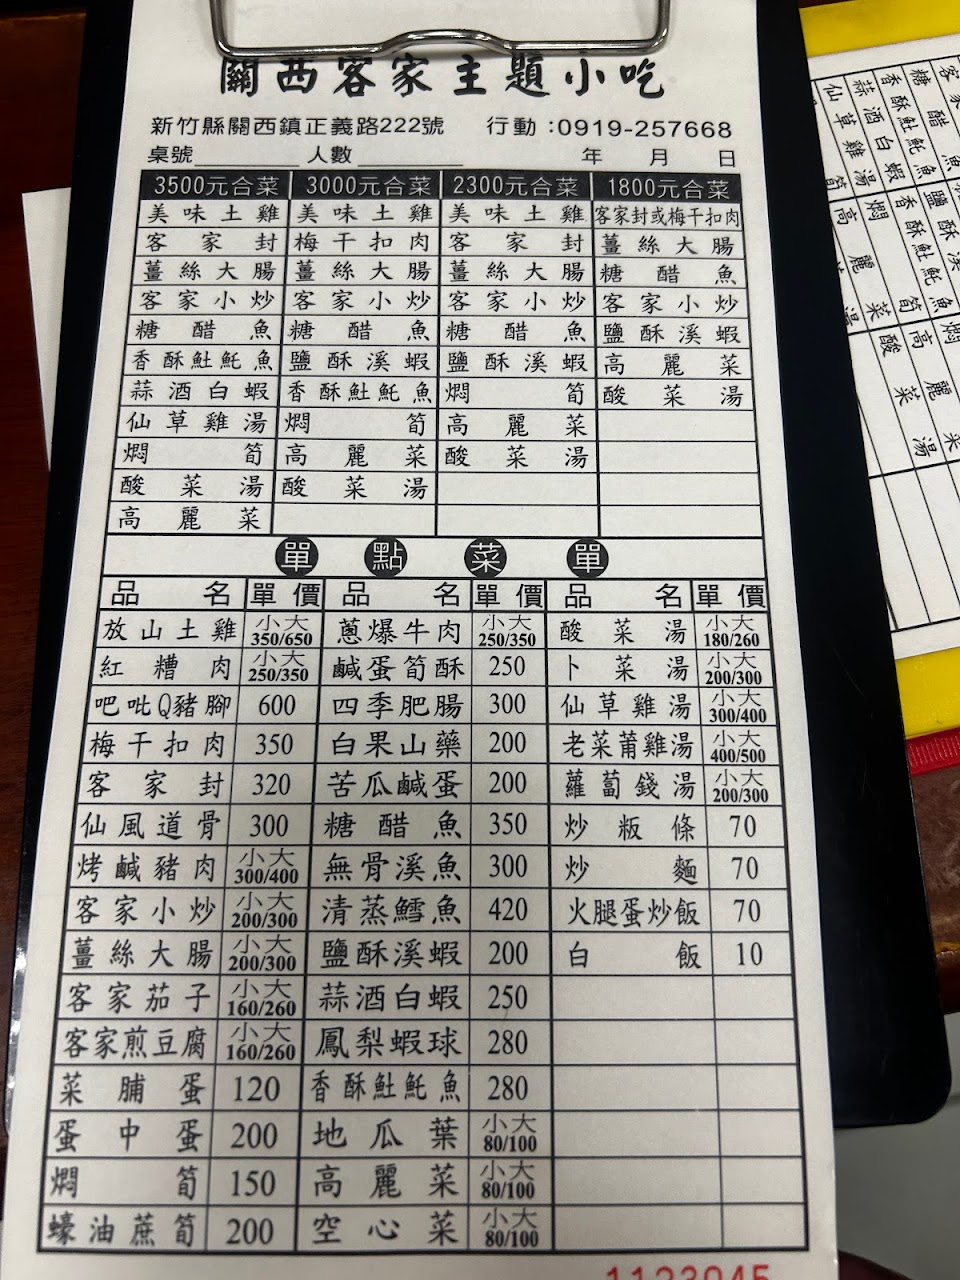 關西客家主題小吃
新竹縣關西鎮正義路222號 行動:0919-257668
桌號 人數 年 月 日
3500元合菜 3000元合菜 2300元合菜 1800元合菜
美味土雞 美味土雞 美味土雞 客家封或梅干扣肉
客家封 梅干扣肉 客家封 薑絲大腸
薑絲大腸 薑絲大腸 薑絲大腸 糖醋魚
客家小炒 客家小炒 客家小炒 客家小炒
糖醋魚 糖醋魚 糖醋魚 鹽酥溪蝦
香酥魠魠魚 鹽酥溪蝦 鹽酥溪蝦 高麗菜
蒜酒白蝦 香酥魠魠魚 燜筍 酸菜湯
仙草雞湯 燜筍 高麗菜
燜筍 高麗菜 酸菜湯
酸菜湯 酸菜湯
高麗菜
單點菜單
品名 單價 品名 單價 品名 單價
放山土雞 小大 350/650 蔥爆牛肉 小大 250/350 酸菜湯 小大 180/260
紅糟肉 小大 250/350 鹹蛋筍酥 250 卜菜湯 小大 200/300
吧吡Q豬腳 600 四季肥腸 300 仙草雞湯 小大 300/400
梅干扣肉 350 白果山藥 200 老菜莆雞湯 小大 400/500
客家封 320 苦瓜鹹蛋 200 蘿蔔錢湯 小大 200/300
仙風道骨 300 糖醋魚 350 炒粄條 70
烤鹹豬肉 小大 300/400 無骨溪魚 300 炒麵 70
客家小炒 小大 200/300 清蒸鱈魚 420 火腿蛋炒飯 70
薑絲大腸 小大 200/300 鹽酥溪蝦 200 白飯 10
客家茄子 小大 160/260 蒜酒白蝦 250
客家煎豆腐 小大 160/260 鳳梨蝦球 280
菜脯蛋 120 香酥魠魠魚 280
蛋中蛋 200 地瓜葉 小大 80/100
燜筍 150 高麗菜 小大 80/100
蠔油蔴筍 200 空心菜 小大 80/100